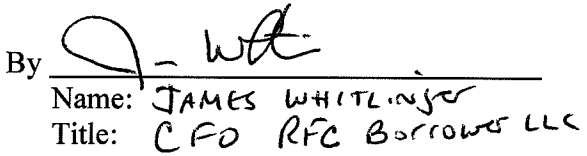 By J - Whi
Name: JAMES WHITLINGER
Title: CFO RFC BORROWER LLC